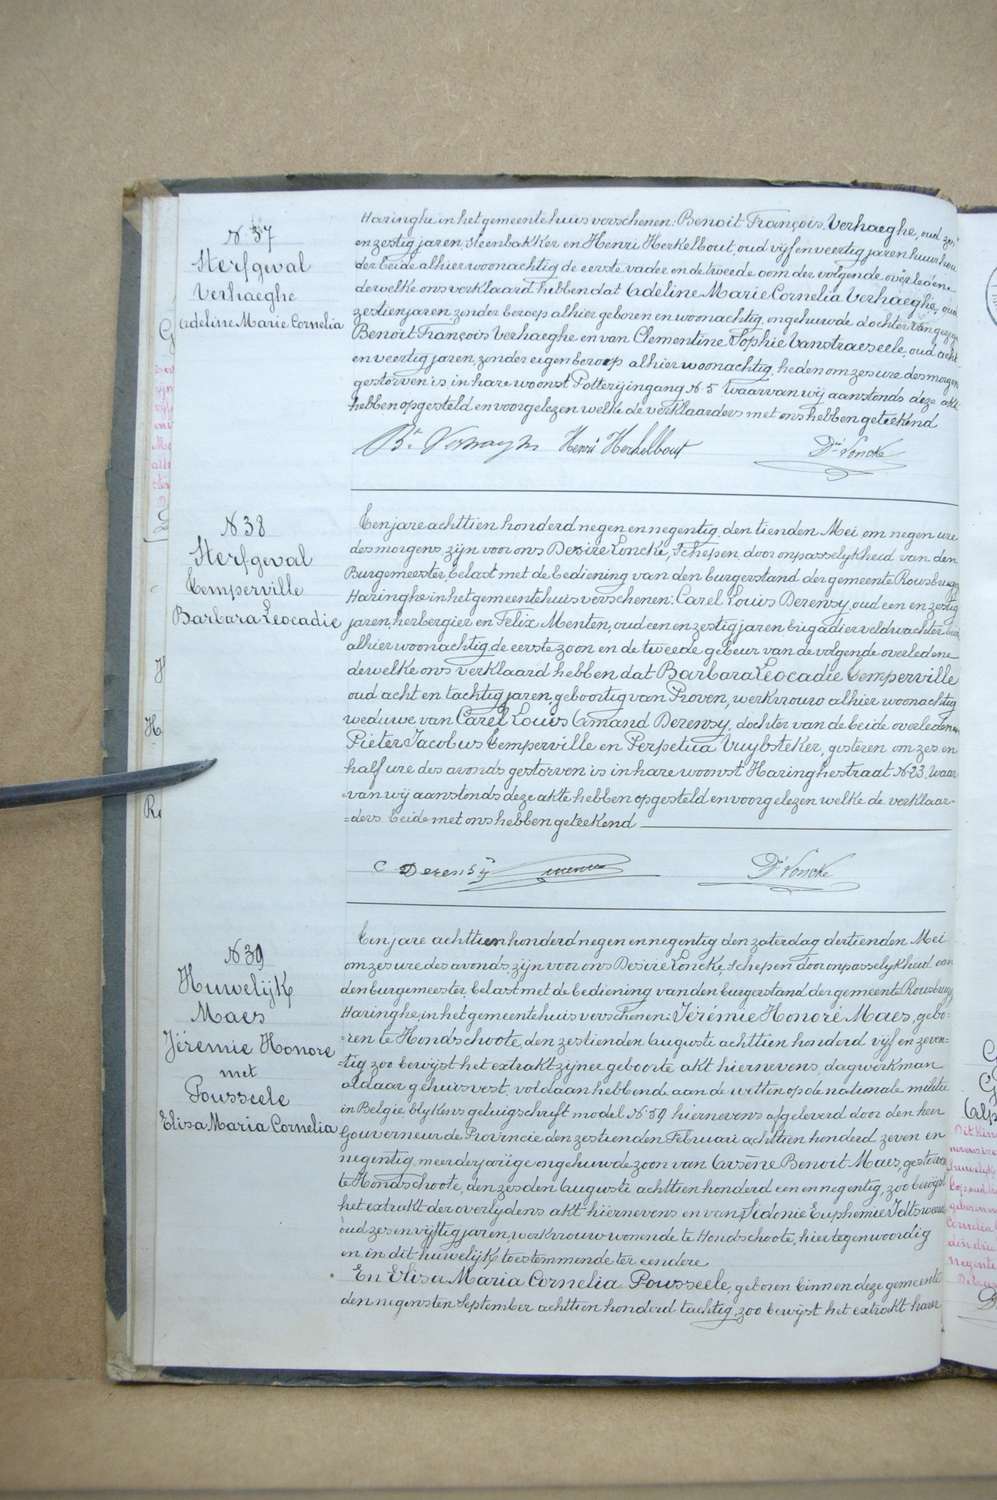 N 37
Sterfgeval
Verhaeghe
Adeline Marie Cornelia
Haringhe in het gemeentehuis verschenen: Benoit François Verhaeghe, oud
en zestig jaren, steenbakker en Henri Herkelbout, oud vijf en veertig jaren
der beide alhier woonachtig de eerste vader en de tweede oom der volgende overledene
dewelke ons verklaard hebben dat Adeline Marie Cornelia Verhaeghe, oud
zestien jaren zonder beroep alhier geboren en woonachtig, ongehuwde dochter van
Benoit François Verhaeghe en van Clementine Sophie Vanstraeseele, oud acht
en veertig jaren, zonder eigen beroep alhier woonachtig, heden om zes ure des morgens
gestorven is in hare woonst Potterijingang N 5 Waarvan wij aanstonds deze akte
hebben opgesteld en voorgelezen welke de verklaarders met ons hebben geteekend
Henri Herkelbout Dré Loncke
N 38
Sterfgeval
Temperville
Barbara Leocadie
Een jare achttien honderd negen en negentig, den tienden Mei om negen ure
des morgens zijn voor ons Desiré Loncke, Schepen door onpasselijkheid van den
Burgemeester, belast met de bediening van den burgerstand der gemeente Rousbrugge
Haringhe in het gemeentehuis verschenen: Carel Louis Derensy, oud een en zestig
jaren, herbergier en Felix Menten, oud een en zestig jaren brigadier veldwachter
alhier woonachtig de eerste zoon en de tweede gebuur van de volgende overledene
dewelke ons verklaard hebben dat Barbara Leocadie Temperville
oud acht en tachtig jaren, geboortig van Proven, werkvrouw alhier woonachtig
weduwe van Carel Louis Amand Derensy, dochter van de beide overledenen
Pieter Jacobus Temperville en Perpetua Vuylsteker, gisteren om zes en
half ure des avonds gestorven is in hare woonst Haringhestraat N 23. Waar
van wij aanstonds deze akte hebben opgesteld en voorgelezen welke de verklaar-
=ders beide met ons hebben geteekend
C Derensÿ Dré Loncke
N 39
Huwelijk
Maes
Jérémie Honoré
met
Pousseele
Elisa Maria Cornelia
Een jare achttien honderd negen en negentig den zaterdag dertienden Mei
om zes ure des avonds, zijn voor ons Desiré Loncke, Schepen door onpasselijkheid van
den burgemeester, belast met de bediening van den burgerstand der gemeente Rousbrugge
Haringhe, in het gemeentehuis verschenen: Jérémie Honoré Maes, gebo=
=ren te Hondschoote, den zestienden Auguste achttien honderd vijf en zeven=
=tig zoo bewijst het extrakt zijner geboorte akt hiernevens, dagwerkman
aldaar gehuisvest, voldaan hebbende aan de wetten op de nationale militie
in Belgie blykens getuigschrift model N 59 hiernevens afgeleverd door den heer
Gouverneur de Provincie den zestienden Februari achttien honderd zeven en
negentig, meerderjarige ongehuwde zoon van Arsène Benoit Maes, gestorven
te Hondschoote, den zesden Auguste achttien honderd een en negentig, zoo bewijst
het extrakt der overlijdens akt hiernevens en van Sidonie Euphemie
oud zes en vijftig jaren, werkvrouw wonende te Hondschoote, hier tegenwoordig
en in dit huwelijk toestemmende ter eendere
En Elisa Maria Cornelia Pousseele, geboren binnen deze gemeente
den negensten September achttien honderd tachtig, zoo bewijst het extrakt harer